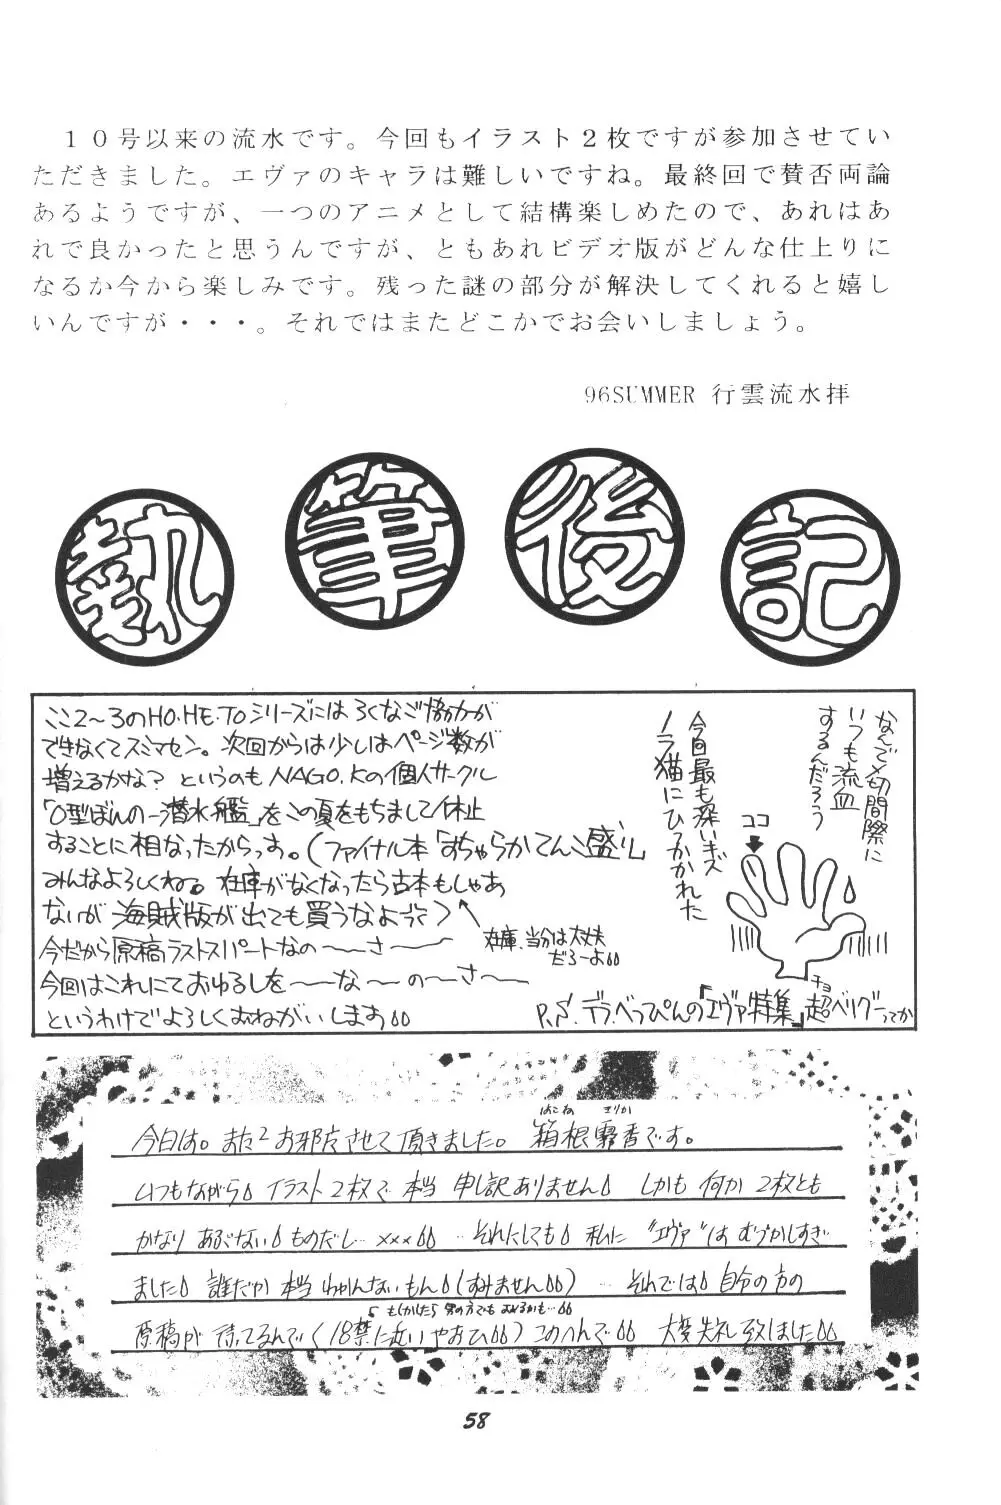 １０号以来の流水です。今回もイラスト２枚ですが参加させてい
ただきました。エヴァのキャラは難しいですね。最終回で賛否両論
あるようですが、一つのアニメとして結構楽しめたので、あれはあ
れで良かったと思うんですが、ともあれビデオ版がどんな仕上りに
なるか今から楽しみです。残った謎の部分が解決してくれると嬉し
いんですが・・・。それではまたどこかでお会いしましょう。
96SUMMER 行雲流水拝
執筆後記
ここ2〜3のHO・HE・TOシリーズにはろくなご協力が
できなくてスミマセン。次回からは少しはページ数が
増えるかな？というのもNAGO.Kの個人サークル
「O型ぼんの一潜水艦」をこの夏をもちまして休止
することに相なったからっす。(ファイナル本「おちゃらかてんこ盛り」
みんなよろしくね。在庫がなくなったら古本もしゃあ
ないが海賊版が出ても買うなよ)
在庫、当分は大丈夫
だろーよ
今だから原稿ラストスパートなの〜〜さ〜〜
今回はこれにておゆるしを〜〜な〜〜の〜さ〜〜
というわけでよろしくおねがいします
なんで〆切間際に
いつも流血
するんだろう
ココ
今回最も深いキズ
ノラ猫にひっかかれた
P.S.デラべっぴんの「エヴァ特集」超ベリグーってか
チョ
はこね えりか
今日は。また2お邪魔させて頂きました。箱根 香です。
いつもながらイラスト2枚で本当申し訳ありません しかも何か2枚とも
かなりあぶないものだし…×××…それにしても私に"エヴァ"はむづかしすぎ
ました 誰だか本当わかんないもん(すみません)…それでは自分の方の
もしかしたら男の方でもおくるかも…
原稿が待ってるんで(18禁に近いやおひ)このへんで 大変失礼致しました
58